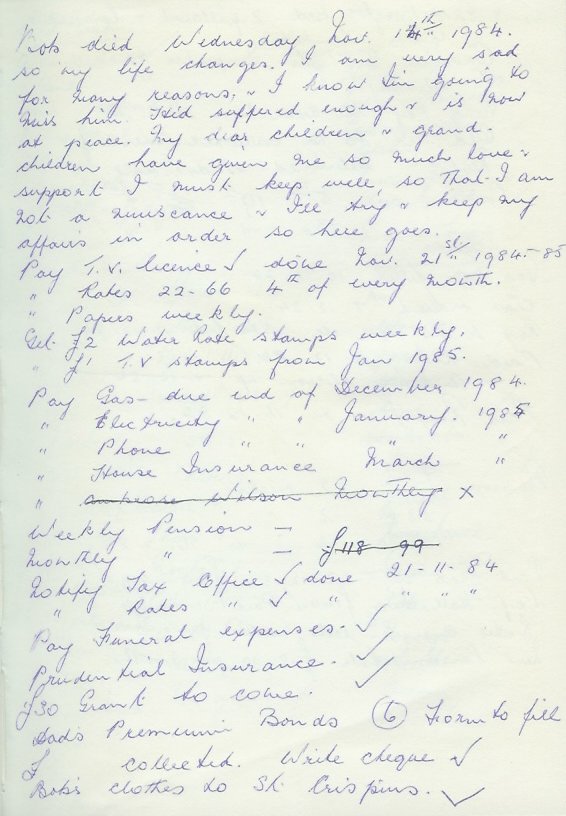 Bob died Wednesday Nov. 14th 1984.
so my life changes. I am very sad
for many reasons, & I know I'm going to
miss him. He'd suffered enough & is now
at peace. My dear children & grand-
children have given me so much love &
support I must keep well, so that I am
not a nuiscance & I'll try & keep my
affairs in order so here goes.
Pay T.V. licence ✓ done Nov. 21st 1984-85
" Rates 22-66 4th of every month.
" Papers weekly.
Get £2 Water Rate stamps weekly.
" £1 T.V stamps from Jan 1985.
Pay Gas - due end of December 1984.
" Electricity " " January. 1985
" Phone " " " "
" House Insurance March "
" Ambrose Wilson Monthly x
Weekly Pension —
Monthly " — £118 99
Notify Tax Office ✓ done 21-11-84
" Rates " ✓ " " " "
Pay Funeral expenses. ✓
Prudential Insurance. ✓
£30 Grant to come. ✓
Dad's Premium Bonds (6) Form to fill
£ collected. Write cheque ✓
Bob's clothes to St. Crispins. ✓